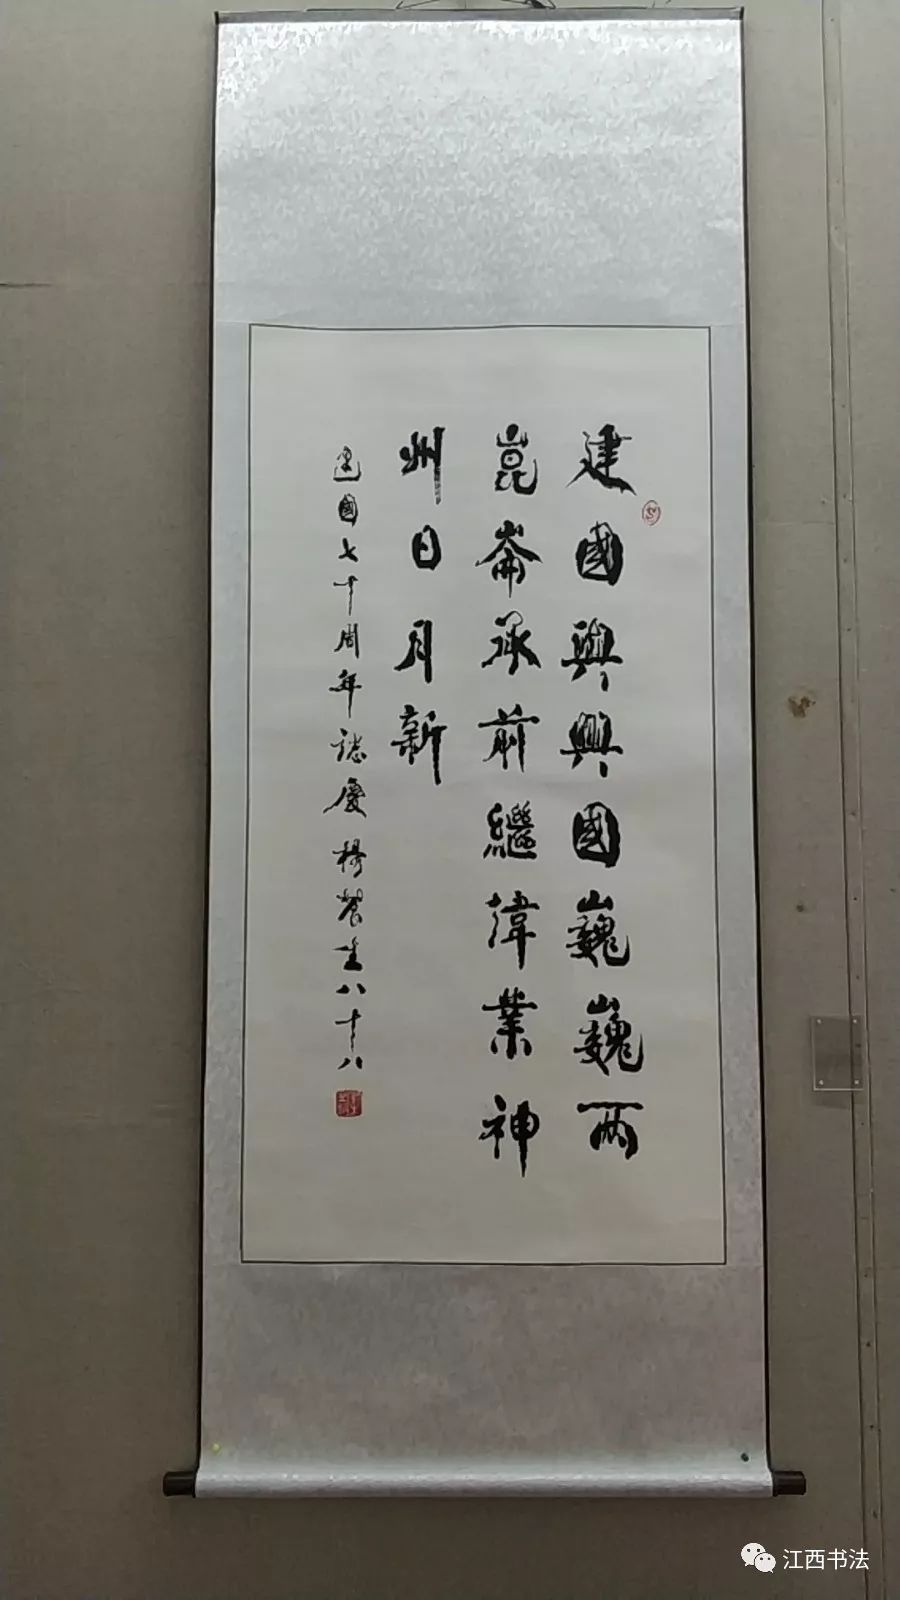 建國興興國巍巍兩
崑崙承前繼偉業神
州日月新
建國七十周年誌慶 楊農生八十八
江西书法